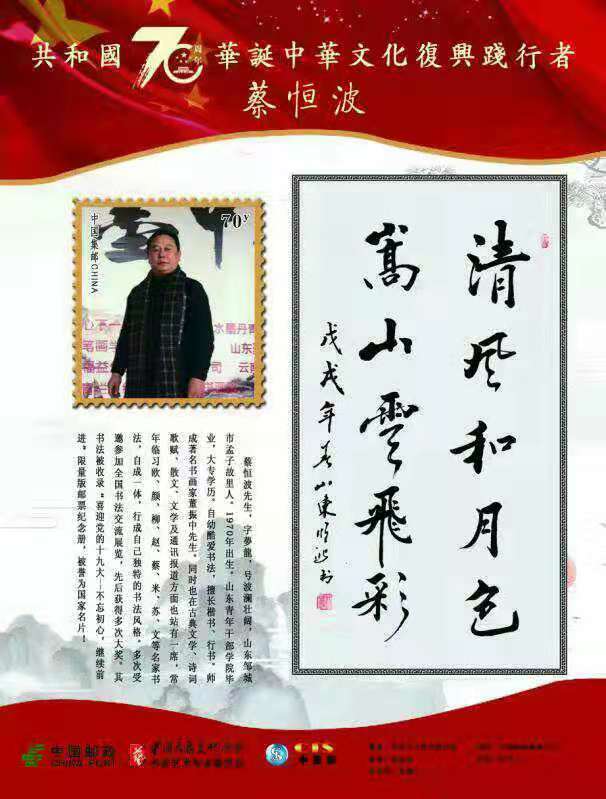 共和國70周年華誕中華文化復興踐行者
蔡恒波
中国集邮CHINA
70y
水墨丹青
笔画
山东
司
清风和月色
嵩山雲飛彩
戊戌年
蔡恒波先生，字夢龍，号波澜壮阔，山东邹城
市孟子故里人。1970年出生，山东青年干部学院毕
业，大专学历。自幼酷爱书法，擅长楷书、行书。师
成著名书画家董振中先生。同时也在古典文学、诗词
歌赋、散文、文学及通讯报道方面也站有一席，常
年临习欧、颜、柳、赵、蔡、米、苏、文等名家书
法，自成一体，行成自己独特的书法风格。多次受
邀参加全国书法交流展览，先后获得多次大奖。其
书法被收录“喜迎党的十九大—不忘初心，继续前
进”限量版邮票纪念册，被誉为国家名片！
中国邮政
CHINA POST
CIS